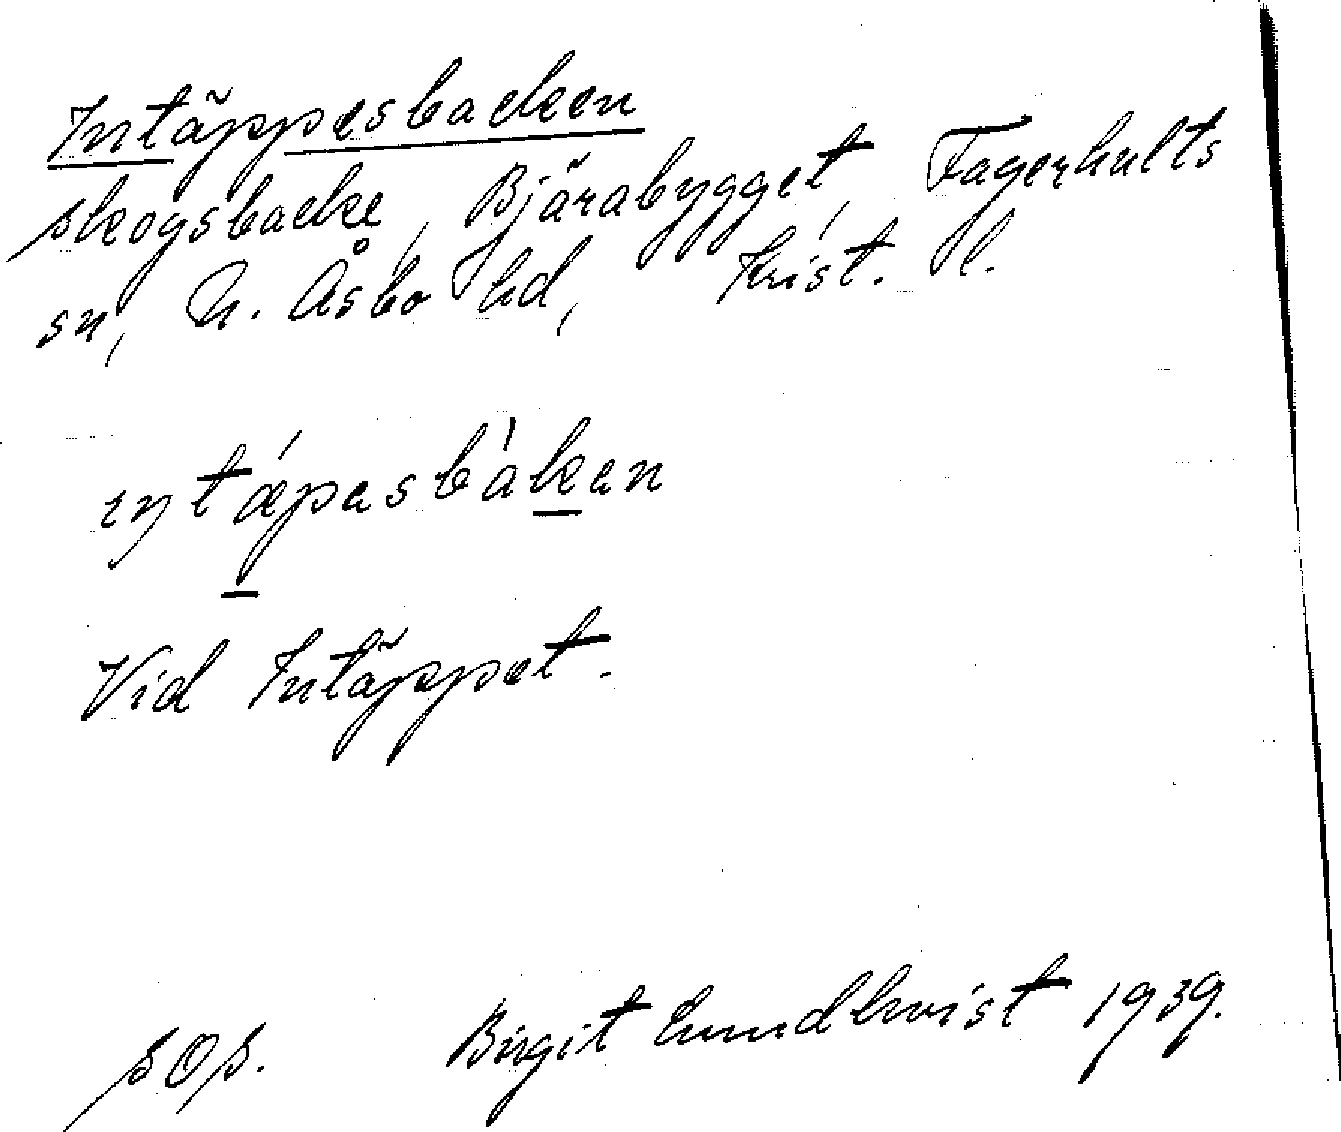 Intäppesbacken
skogsbacke, Bjärabygget, Fagerhults
sn, N. Åsbo hd, Krist. l.
ıntǽpasbákan
Vid Intäppet.
sOs. Birgit Lundkvist 1939.